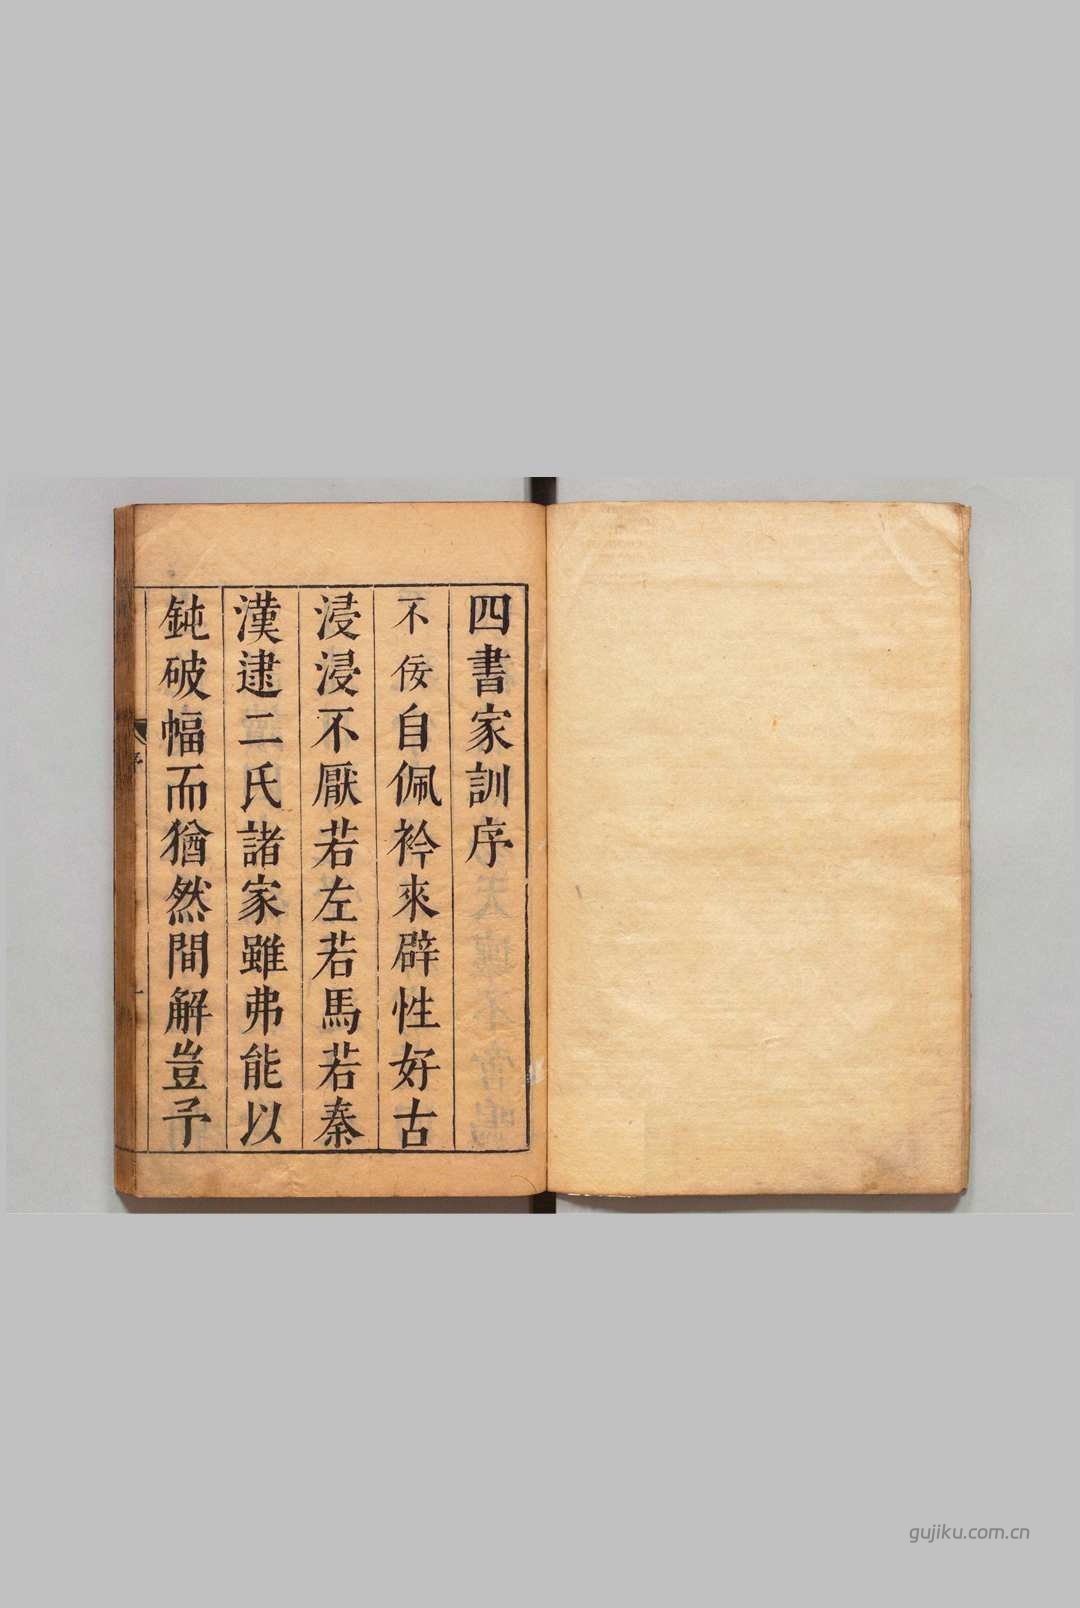 四書家訓序
不佞自佩衿來辟性好古
浸浸不厭若左若馬若秦
漢逮二氏諸家雖弗能以
鈍破幅而猶然間解豈予
序
一
gujiku.com.cn